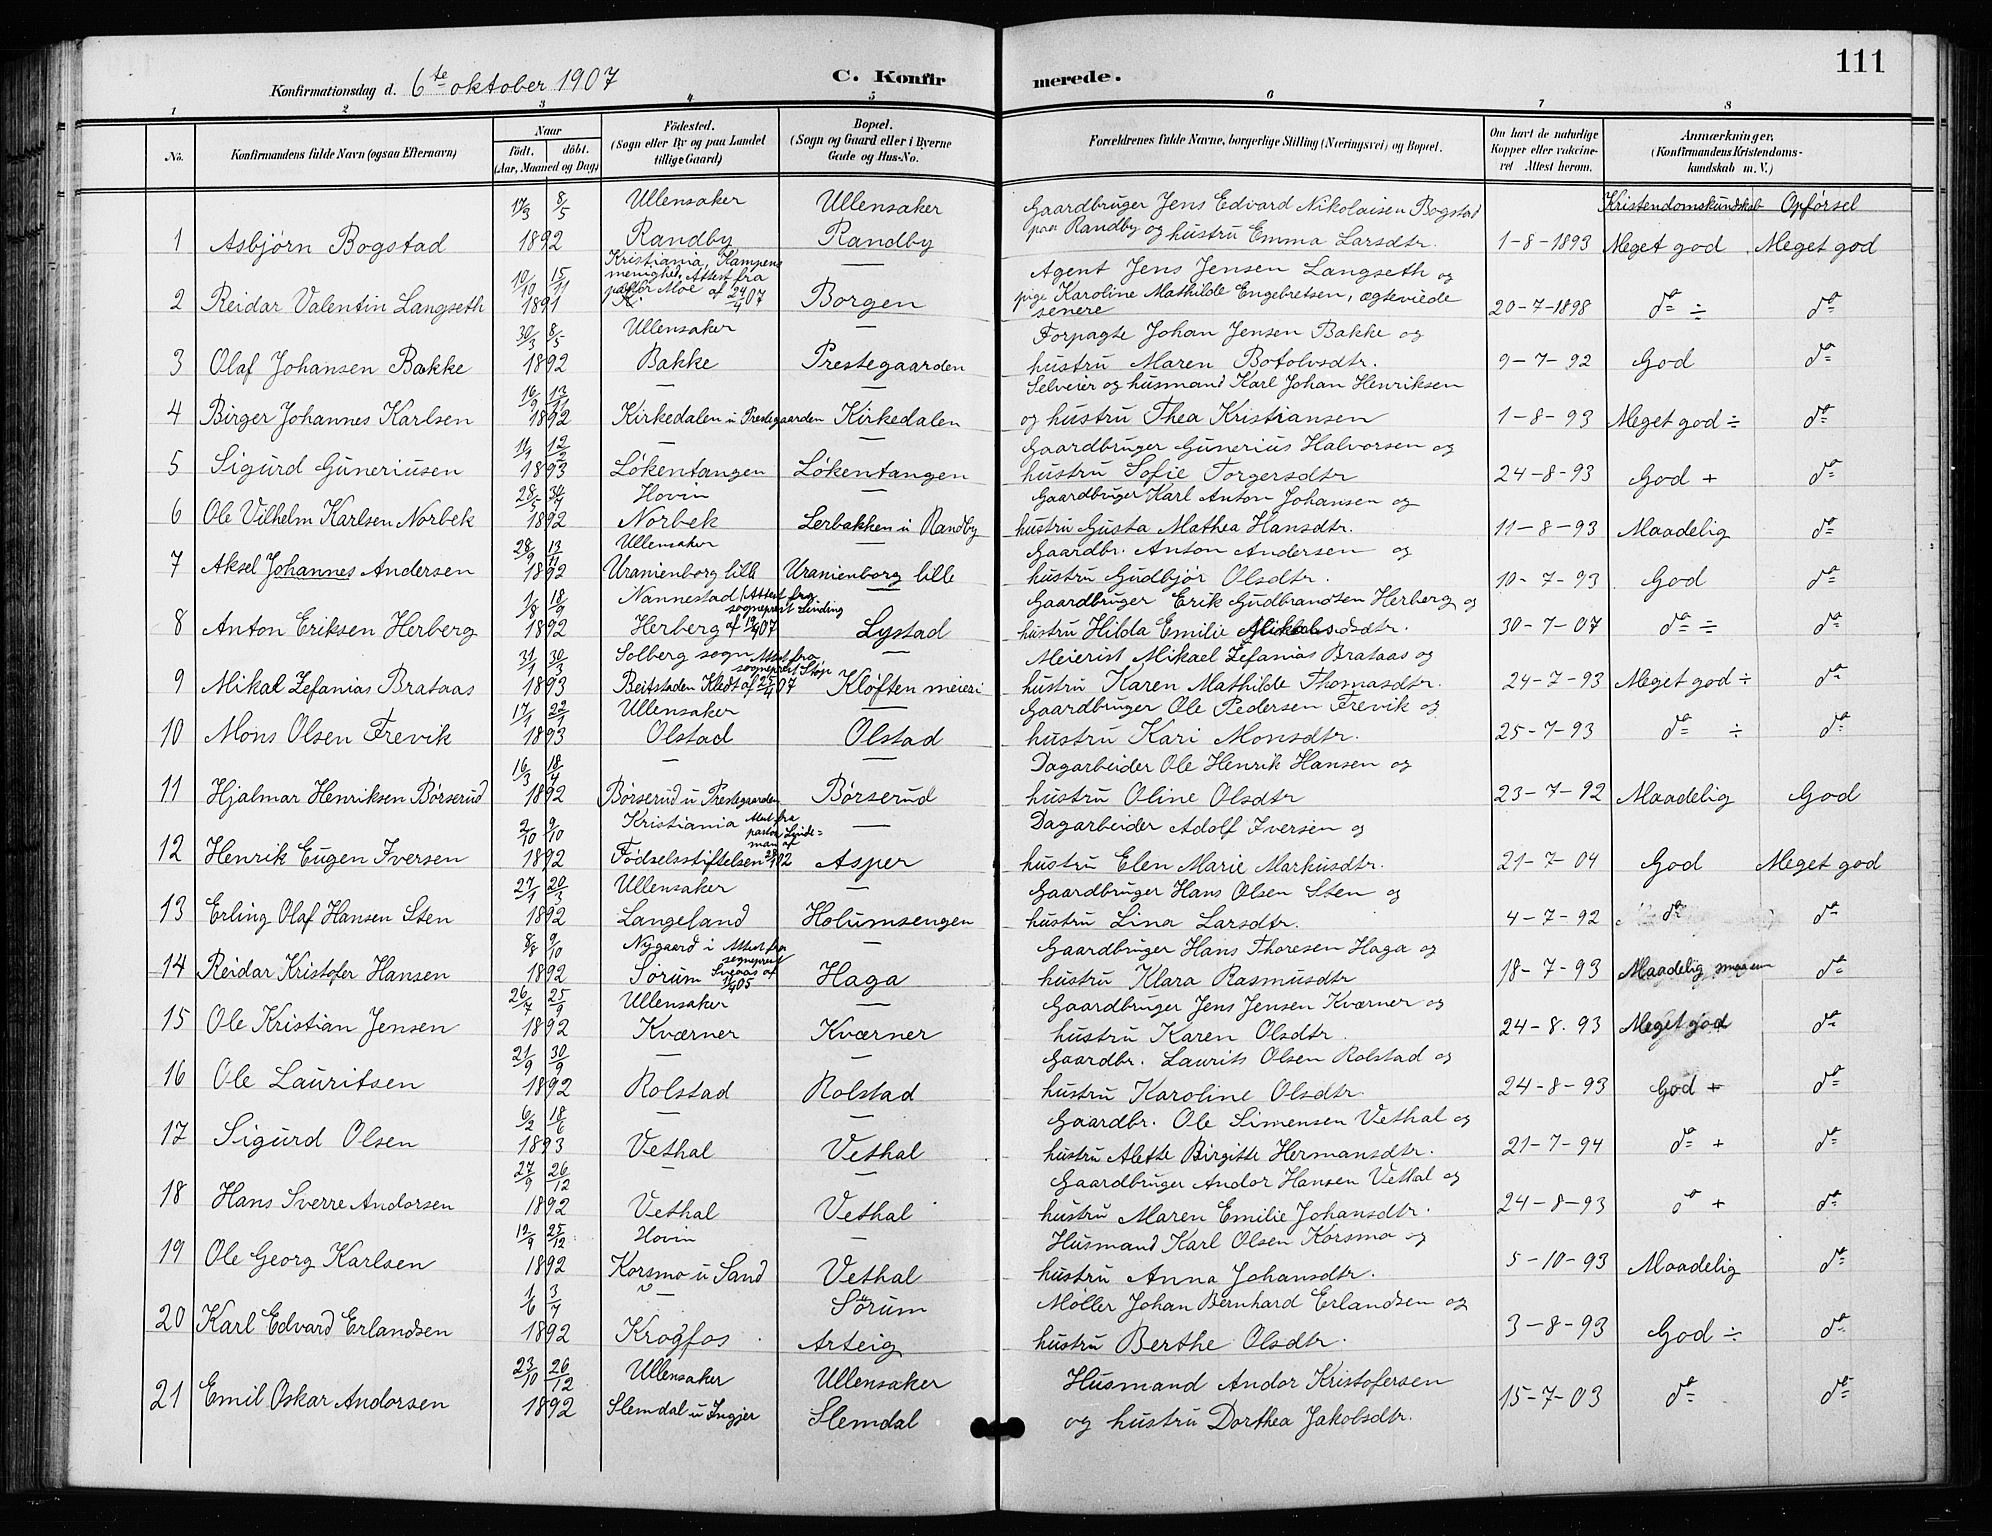 111
Konfirmationsdag d. 6te oktober 1907
C. Konfir merede.
1 2 3 4 5 6 7 8
No. Konfirmandens fulde Navn (ogsaa Efternavn) Naar Födt. döbt. (Aar, Maaned og Dag) Födested. (Sogn eller By og paa Landet tillige Gaard) Bopæl. (Sogn og Gaard eller i Byerne Gade og Hus-No. Forældrenes fulde Navne, borgerlige Stilling (Næringsvei) og Bopæl. Om havt de naturlige Kopper eller vakcineret Attest herom. Anmærkninger, (Konfirmandens Kristendomskundskab m. V.)
Kristendomskundskab Opførsel
17/3 8/5 Ullensaker Ullensaker Gaardbruger Jens Edvard Nikolaisen Bogstad
1 Asbjørn Bogstad 1892 Randby Randby paa Randby og hustru Emma Larsdtr. 1-8-1893 Meget god Meget god
10/10 15/11 Kristiania, Kampens menighet, Attest fra — Agent Jens Jensen Langseth og
2 Reidar Valentin Langseth 1891 pastor Moe af 24/4 07 Borgen pige Karoline Mathilde Engebretsen, ægteviede senere 20-7-1898 do ÷ do
30/3 8/5 Ullensaker — Forpagte Johan Jensen Bakke og
3 Olaf Johansen Bakke 1892 Bakke Prestegaarden hustru Maren Botolvsdtr. 9-7-92 God do
16/9 13/11 — Selveier og husmand Karl Johan Henriksen
4 Birger Johannes Karlsen 1892 Kirkedalen u Prestegaarden Kirkedalen og hustru Thea Kristiansen 1-8-93 Meget god ÷ do
12/2 — — Gaardbruger Gunerius Halvorsen og
5 Sigurd Guneriusen 1893 Løkentangen Løkentangen hustru Sofie Torgersdtr 24-8-93 God + do
Hovin — Gaardbruger Karl Anton Johansen og
6 Ole Vilhelm Karlsen Norbek 1892 Norbek Lerbakken u Randby hustru Gusta Mathea Hansdtr. 11-8-93 Maadelig do
28/9 13/11 Ullensaker Gaardbr. Anton Andersen og
7 Aksel Johannes Andersen 1892 Uranienborg lille Uranienborg lille hustru Gudbjør Olsdtr. 10-7-93 God do
1/8 18/9 Nannestad (Attest fra sogneprest Linding — Gaardbruger Erik Gudbrandsen Herberg og
8 Anton Eriksen Herberg 1892 Herberg af 19/4 07 Lystad hustru Hilda Emilie 30-7-07 do ÷ do
31/1 30/3 Solberg sogn Attest fra sogneprest — Meierist Mikael Zefanias Brataas og
9 Mikal Zefanias Brataas 1893 Beitstaden Kløften meieri hustru Karen Mathilde Thomasdtr. 24-7-93 Meget god ÷ do
17/1 22/1 Ullensaker — Gaardbruger Ole Pedersen Frevik og
10 Mons Olsen Frevik 1893 Olstad Olstad hustru Kari Monsdtr. 25-7-93 do ÷ do
16/3 18/4 — — Dagarbeider Ole Henrik Hansen og
11 Hjalmar Henriksen Børserud 1892 Børserud u Prestegaarden Børserud hustru Oline Olsdtr 23-7-92 Maadelig God
2/10 9/10 Kristiania Attest fra pastor Lindeman af — Dagarbeider Adolf Iversen og
12 Henrik Eugen Iversen 1892 Fødselsstiftelsen Asper hustru Elen Marie Markusdtr. 21-7-04 God Meget god
27/1 20/3 Ullensaker — Gaardbruger Hans Olsen Sten og
13 Erling Olaf Hansen Sten 1892 Langeland Holumsengen hustru Lina Larsdtr. 4-7-92 do do
8/8 9/10 Nygaard i Attest fra sogneprest — Gaardbruger Hans Thoresen Haga og
14 Reidar Kristofer Hansen 1892 Sørum Sveaas af Haga hustru Klara Rasmusdtr 18-7-93 Maadelig do
26/7 25/9 Ullensaker — Gaardbruger Jens Jensen Kværner og
15 Ole Kristian Jensen 1892 Kværner Kværner hustru Karen Olsdtr. 24-8.93 Meget god do
21/9 30/9 — — Gaardbr. Laurits Olsen Rolstad og
16 Ole Lauritsen 1892 Rolstad Rolstad hustru Karoline Olsdtr. 24-8-93 God + do
6/2 18/6 — — Gaardbr. Ole Simensen Vethal og
17 Sigurd Olsen 1893 Vethal Vethal hustru Alette Birgitte Hermansdtr. 21-7-94 do + do
27/9 26/12 — — Gaardbruger Andor Hansen Vethal og
18 Hans Sverre Andorsen 1892 Vethal Vethal hustru Maren Emilie Johansdtr. 24-8-93 do + do
12/9 25/12 Hovin — Husmand Karl Olsen Korsmo og
19 Ole Georg Karlsen 1892 Korsmo u Sand Vethal hustru Anna Johansdtr. 5-10-93 Maadelig do
1/6 3/7 — Sørum Møller Johan Bernhard Erlandsen og
20 Karl Edvard Erlandsen 1892 Krogfos Arteig hustru Berthe Olsdtr. 3-8-93 God ÷ do
23/10 26/12 Ullensaker Ullensaker Husmand Andor Kristofersen
21 Emil Oskar Andorsen 1892 Slemdal u Ingjer Slemdal og hustru Dorthea Jakobsdtr. 15-7-03 do do